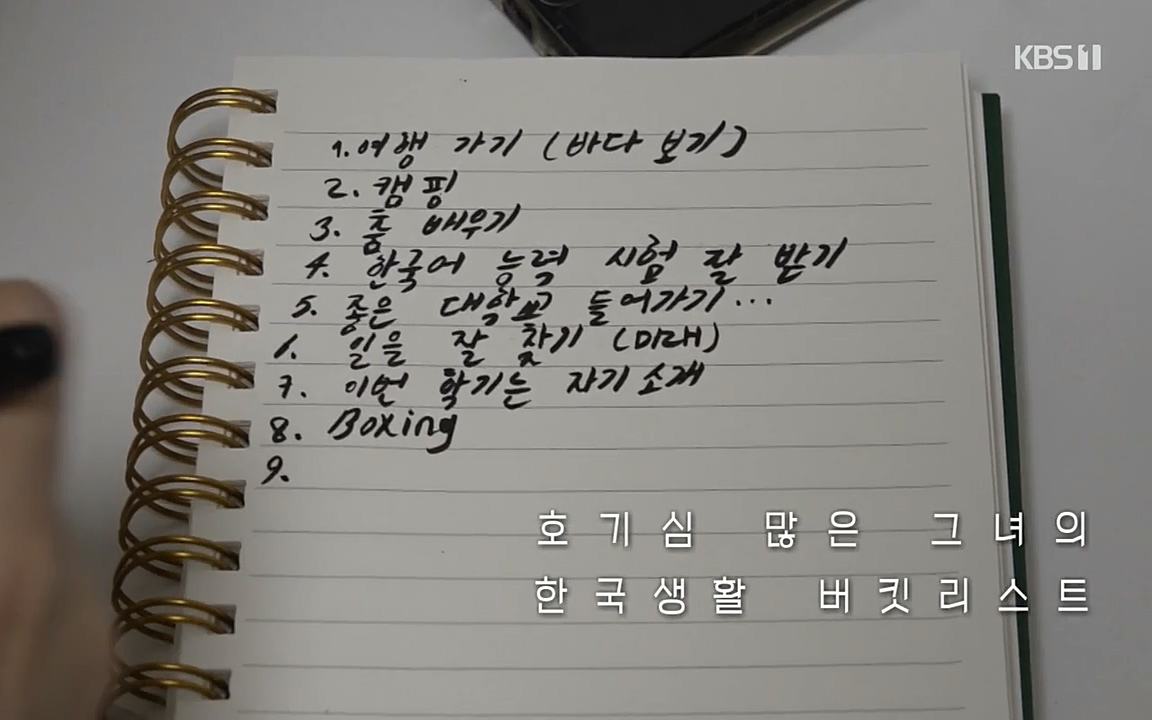 KBS1
1. 여행 가기 (바다 보기)
2. 캠핑
3. 춤 배우기
4. 한국어 능력 시험 잘 받기
5. 좋은 대학교 들어가기...
6. 일을 잘 찾기 (미래)
7. 이번 학기는 자기소개
8. Boxing
9.
호기심 많은 그녀의
한국생활 버킷리스트